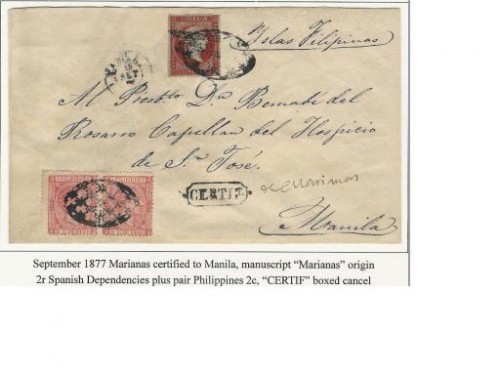 Islas Filipinas
Al Presb.to Dn. Bernabé del
Rosario Capellan del Hospicio
de Sn. José.
CERTIF
de Marianas
Manila
September 1877 Marianas certified to Manila, manuscript “Marianas” origin
2r Spanish Dependencies plus pair Philippines 2c, “CERTIF” boxed cancel